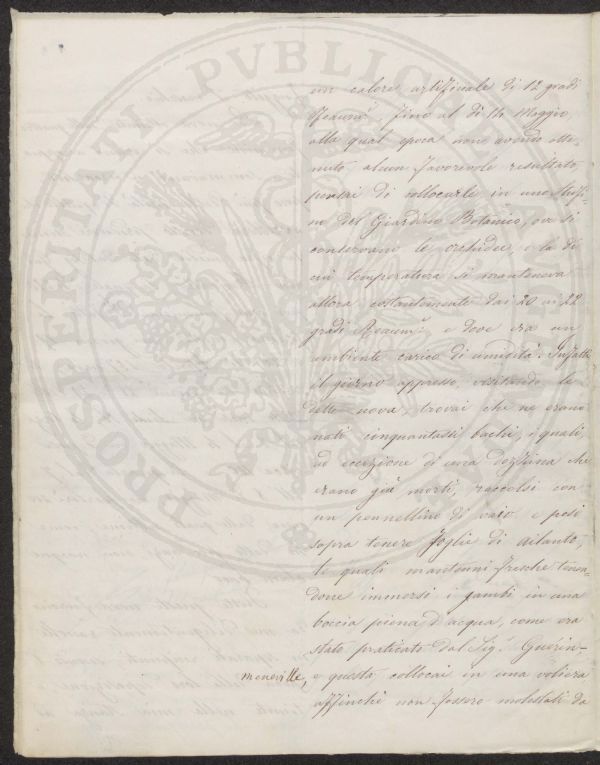 PROSPERITATI PVBLICAE AVG
un calore artificiale di 12 gradi
Reaumr, fino al dì 14 Maggio,
alla qual epoca non avendo otte-
nuto alcun favorevole resultato,
pensai di collocarle in uno stufi-
no del Giardino Botanico, ove si
conservano le orchidee, e la di
cui temperatura si manteneva
allora costantemente dai 20 ai 22
gradi Reaumr, e dove era un
ambiente carico di umidità. Infatti
il giorno appresso, visitando le
dette uova, trovai che ne erano
nati cinquantasei bachi, i quali,
ad eccezione di una dozzina che
erano già morti, raccolsi con
un pennellino di vaio e posi
sopra tenere foglie di ailanto,
le quali mantenni fresche tenen-
done immersi i gambi in una
boccia piena d'acqua, come era
stato praticato dal Sig. Guerin-
meneville, e questa collocai in una voliera
affinchè non fossero molestati da